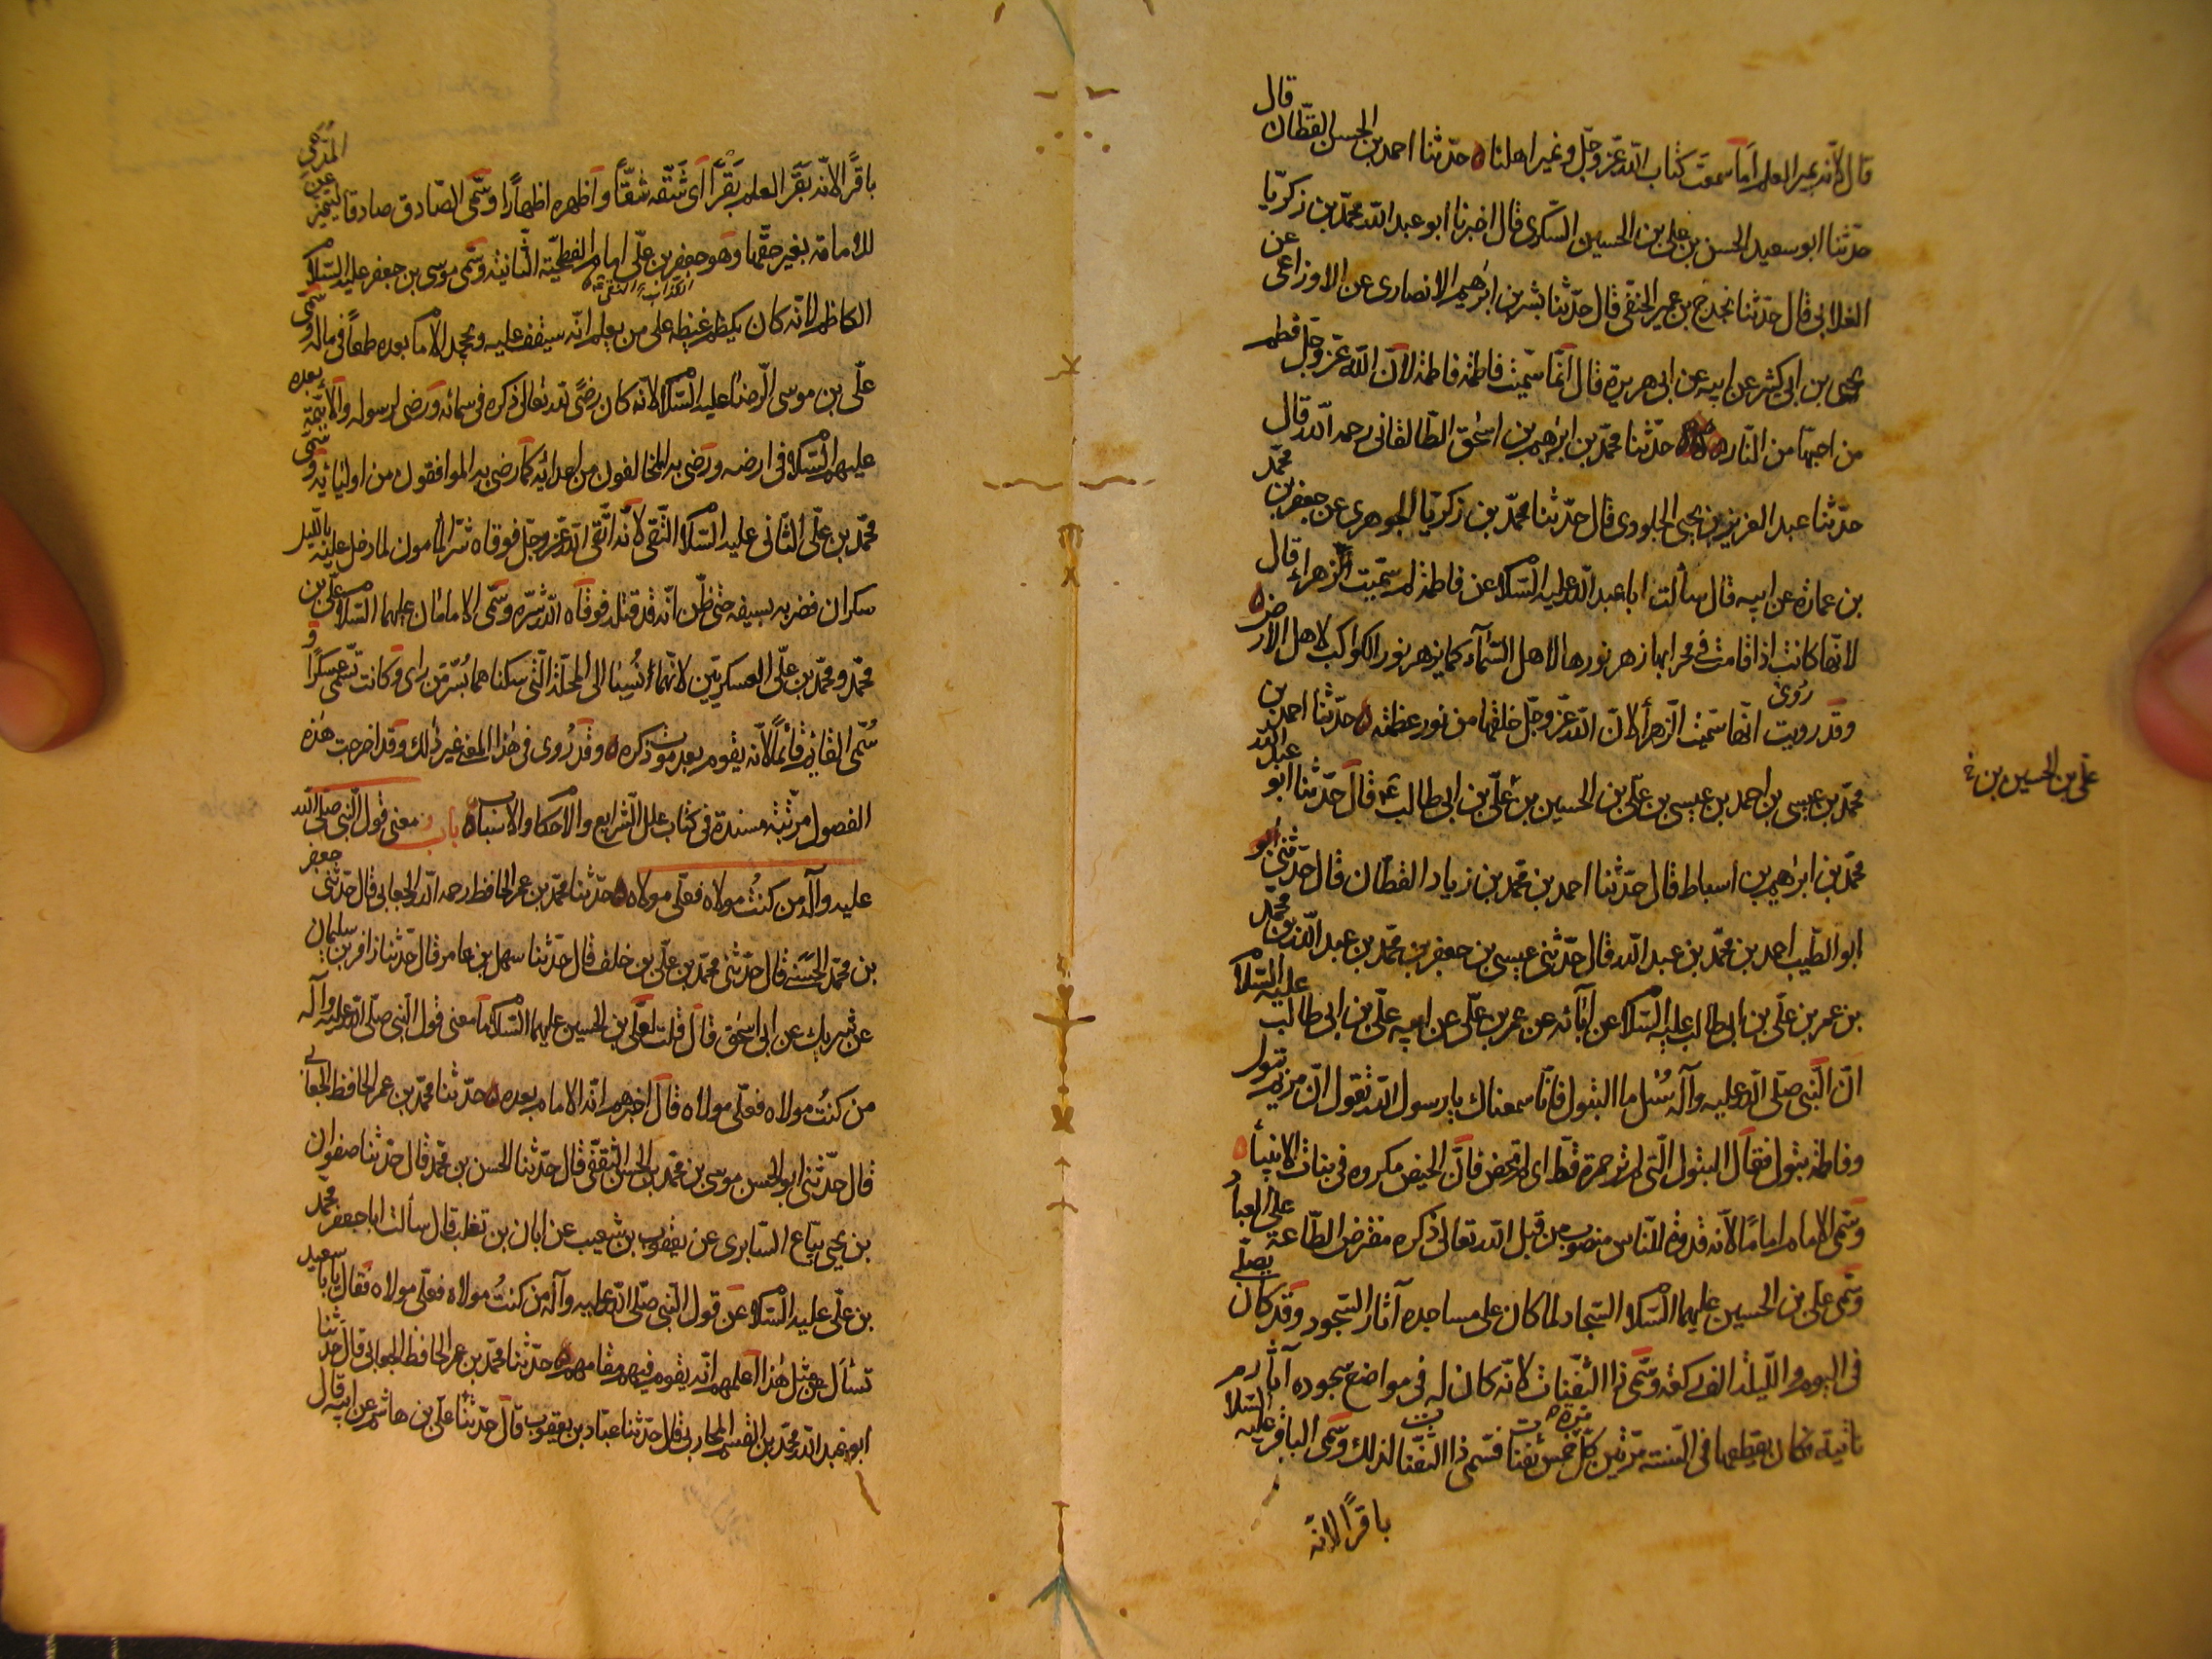 قال لأنّه يمير العلم أما سمعت كتاب الله عزّ وجلّ ونمير أهلنا ه حدّثنا احمد بن الحسن القطّان قال
حدّثنا ابو سعيد الحسن بن علي بن الحسين السكري قال اخبرنا ابو عبد الله محمّد بن زكريّا
الغلابي قال حدّثنا مخدج بن عمير الحنفي قال حدّثنا بشر بن ابرهيم الانصاري عن الاوزاعي عن
يحيى بن ابي كثير عن ابيه عن ابي هريرة قال انّما سمّيت فاطمة فاطمة لانّ الله عزّ وجلّ فطم
من احبّها من النار ه حدّثنا محمّد بن ابرهيم بن اسحق الطالقاني رحمه الله قال
حدّثنا عبد العزيز بن يحيى الجلودي قال حدّثنا محمّد بن زكريّا الجوهري عن جعفر بن محمّد
بن عمارة عن ابيه قال سألت ابا عبد الله عليه السلام عن فاطمة لم سمّيت الزهراء قال
لانّها كانت اذا قامت في محرابها زهر نورها لاهل السماء كما يزهر نور الكواكب لاهل الارض ه
وقد رويت روى انّها سمّيت الزهراء لانّ الله عزّ وجلّ خلقها من نور عظمته ه حدّثنا احمد بن
محمّد بن عيسى بن احمد بن عيسى بن علي بن الحسين بن علي بن ابي طالب قال حدّثنا ابو عبد الله
علي بن الحسين بن خ
محمّد بن ابراهيم بن اسباط قال حدّثنا احمد بن محمّد بن زياد القطّان قال حدّثني ابو
ابو الطيّب احمد بن محمّد بن عبد الله قال حدّثني عيسى بن جعفر بن محمّد بن عبد الله بن محمّد
بن عمر بن علي بن ابي طالب عليه السلام عن آبائه عن عمر بن علي عن ابيه علي بن ابي طالب عليه السلام
انّ النبي صلّى الله عليه وآله سئل ما البتول فانّا سمعناك يا رسول الله تقول انّ مريم بتول
وفاطمة بتول فقال البتول الّتي لم تر حمرة قطّ اي لم تحض فانّ الحيض مكروه في بنات الانبياء ه
وسمّي الامام اماما لانّه قدوة للناس منصوب من قبل الله تعالى ذكره مفترض الطاعة على العباد
وسمّي علي بن الحسين عليهما السلام السجاد لما كان على مساجده آثار السجود وقد كان يصلّي
في اليوم والليلة الف ركعة وسمّي ذا الثفنات لانّه كان له في مواضع سجوده آثار
ناتية فكان يقطعها في السنة مرّتين كلّ مرة خمس ثفنات فسمّي ذا الثفنات لذلك وسمّي الباقر عليه السلام
باقرًا لانّه
باقرًا لانّه بقر العلم بقرًا اي شقّه شقًّا واظهره اظهارًا وسمّي الصادق صادقا ليتميّز عن المدّعي
للامامة بغير حقّها وهو جعفر بن علي امام الفطحيّة الثانية وسمّي موسى بن جعفر عليه السلام
الكاظم لانّه كان يكظم غيظه على من يعلم انّه سيقف عليه ويجحد الامام بعده طمعًا في ماله وسمّي
علي بن موسى الرضا عليه السلام لانّه كان رضًى لله تعالى ذكره في سمائه ورضى لرسوله والائمّة بعده
عليهم السلام في ارضه ورضى به المخالفون من اعدائه كما رضى به الموافقون من اوليائه وسمّي
محمّد بن علي الثاني عليه السلام التقي لانّه اتّقى الله عزّ وجلّ فوقاه شرّ المأمون لما دخل عليه بالليل
سكران فضربه بسيفه حتى ظنّ انّه قد قتله فوقاه الله شرّه وسمّي الامامان عليهما السلام علي بن
محمّد ومحمّد بن علي العسكريّين لانّهما نُسبا الى المحلّة الّتي سكناها بسرّ من رأى وكانت تسمّى عسكرًا و
سُمّي القائم قائمًا لانّه يقوم بعد موت ذكره ه وقد رُوي في هذا المعنى غير ذلك وقد اخرجت هذه
الفصول مرتّبة مسندة في كتاب علل الشرايع والاحكام والاسباب ه باب معنى قول النبي صلّى الله
عليه وآله من كنتُ مولاه فعلي مولاه ه حدّثنا محمّد بن عمر الحافظ رحمه الله الجعابي قال حدّثني جعفر
بن محمّد الحسني قال حدّثني محمّد بن علي بن خلف قال حدّثنا سهل بن عامر قال حدّثنا زافر بن سليمان
عن شريك عن ابي اسحق قال قلت لعلي بن الحسين عليهما السلام ما معنى قول النبي صلّى الله عليه وآله
من كنتُ مولاه فعلي مولاه قال اخبرهم انّه الامام بعده ه حدّثنا محمّد بن عمر الحافظ الجعابي
قال حدّثني ابو الحسن موسى بن محمّد بن الحسن الثقفي قال حدّثنا الحسن بن محمّد قال حدّثنا صفوان
بن يحيى بيّاع السابري عن يعقوب بن شعيب عن ابان بن تغلب قال سألت ابا جعفر محمّد
بن علي عليه السلام عن قول النبي صلّى الله عليه وآله من كنتُ مولاه فعلي مولاه فقال يا با سعيد
تسأل عن مثل هذا اعلمهم انّه يقوم فيهم مقامهم ه حدّثنا محمّد بن عمر الحافظ الجعابي قال حدّثنا
ابو عبد الله محمّد بن القسم المحاربي قال حدّثنا عبّاد بن يعقوب قال حدّثنا علي بن هاشم عن ابيه قال